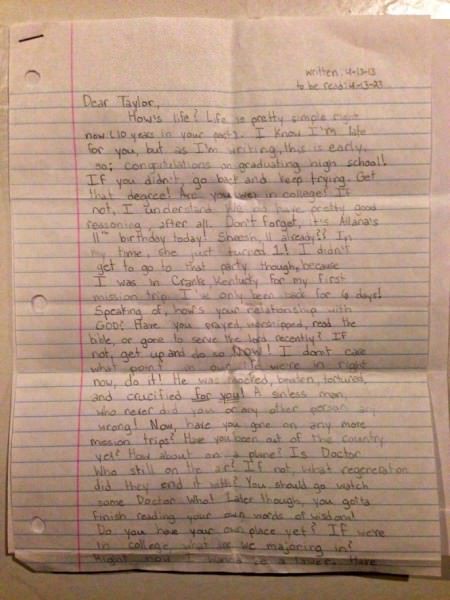 written: 4-13-13
to be read: 4-13-23
Dear Taylor,
How's life? Life is pretty simple right
now (10 years in your past). I know I'm late
for you, but as I'm writing, this is early.
so: congratulations on graduating high school!
If you didn't, go back and keep trying. Get
that degree! Are you in college? If
not, I understand. We do have pretty good
reasoning, after all. Don't forget, it's Ailana's
11th birthday today! Sheesh, 11 already?! In
my time, she just turned 1! I didn't
get to go to that party though, because
I was in Crank, Kentucky for my first
mission trip. I've only been back for 6 days!
Speaking of, how's your relationship with
GOD? Have you prayed, worshipped, read the
bible, or gone to serve the lord recently? If
not, get up and do so NOW! I don't care
what point in our life we're in right
now, do it! He was mocked, beaten, tortured,
and crucified for you! A sinless man,
who never did you or any other person any
wrong! Now, have you gone on any more
mission trips? Have you been out of the country
yet? How about on a plane? Is Doctor
Who still on the air? If not, what regeneration
did they end it with? You should go watch
some Doctor Who! Later though, you gotta
finish reading your own words of wisdom!
Do you have your own place yet? If we're
in college what are we majoring in?
Right now I wanna be a lawyer. Have